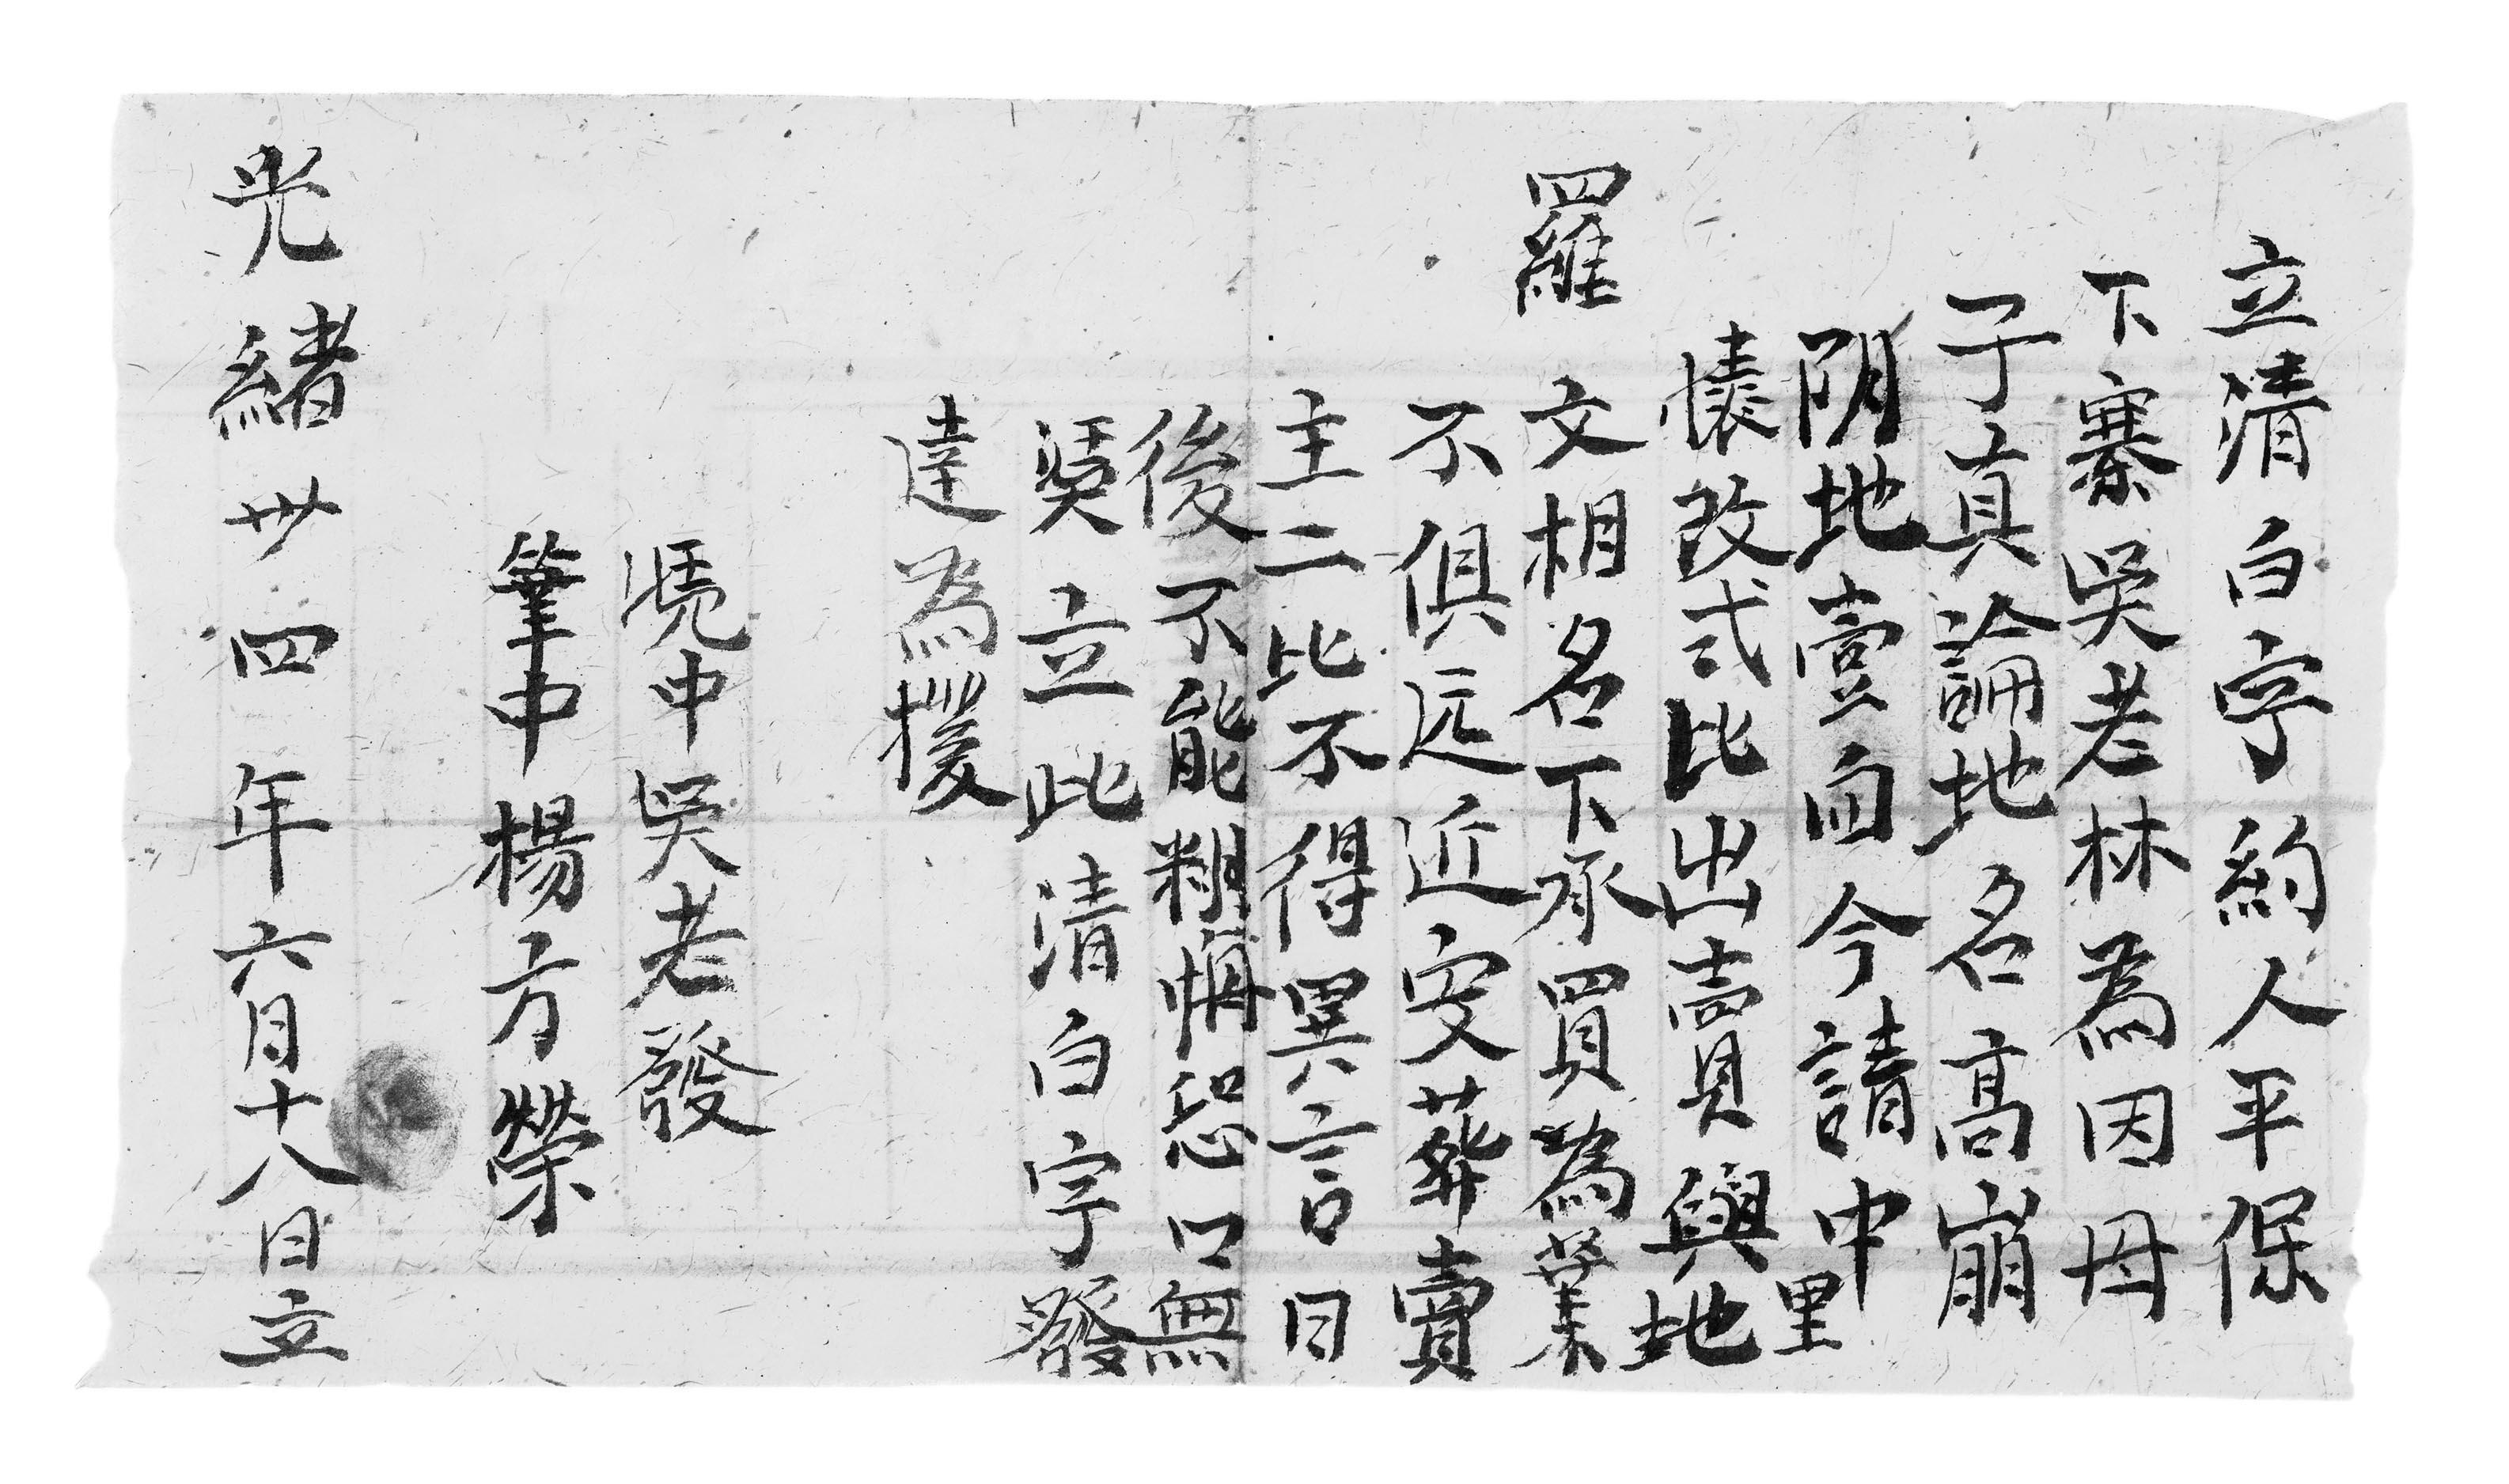 立清白字約人平保
下寨吳老林為因母
子真論地名高崩
阴地壹向今請中里
懐改弍比出賣與地
羅文相名下承買為業
不俱远近安葬賣
主二比不得異言日
後不能糊悔恐口無
慿立此清白字發
達為援
慿中吳老發
筆中楊方榮
光緒卅四年六月十八日立